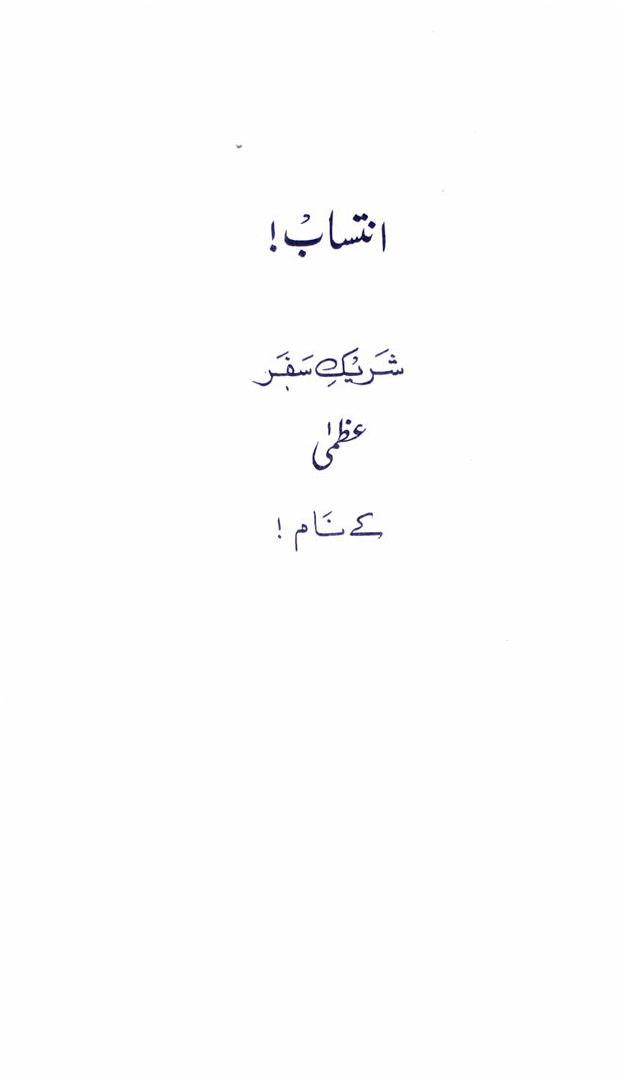 انتساب !
شَریکِ سَفَر
عظمیٰ
کے نَام !